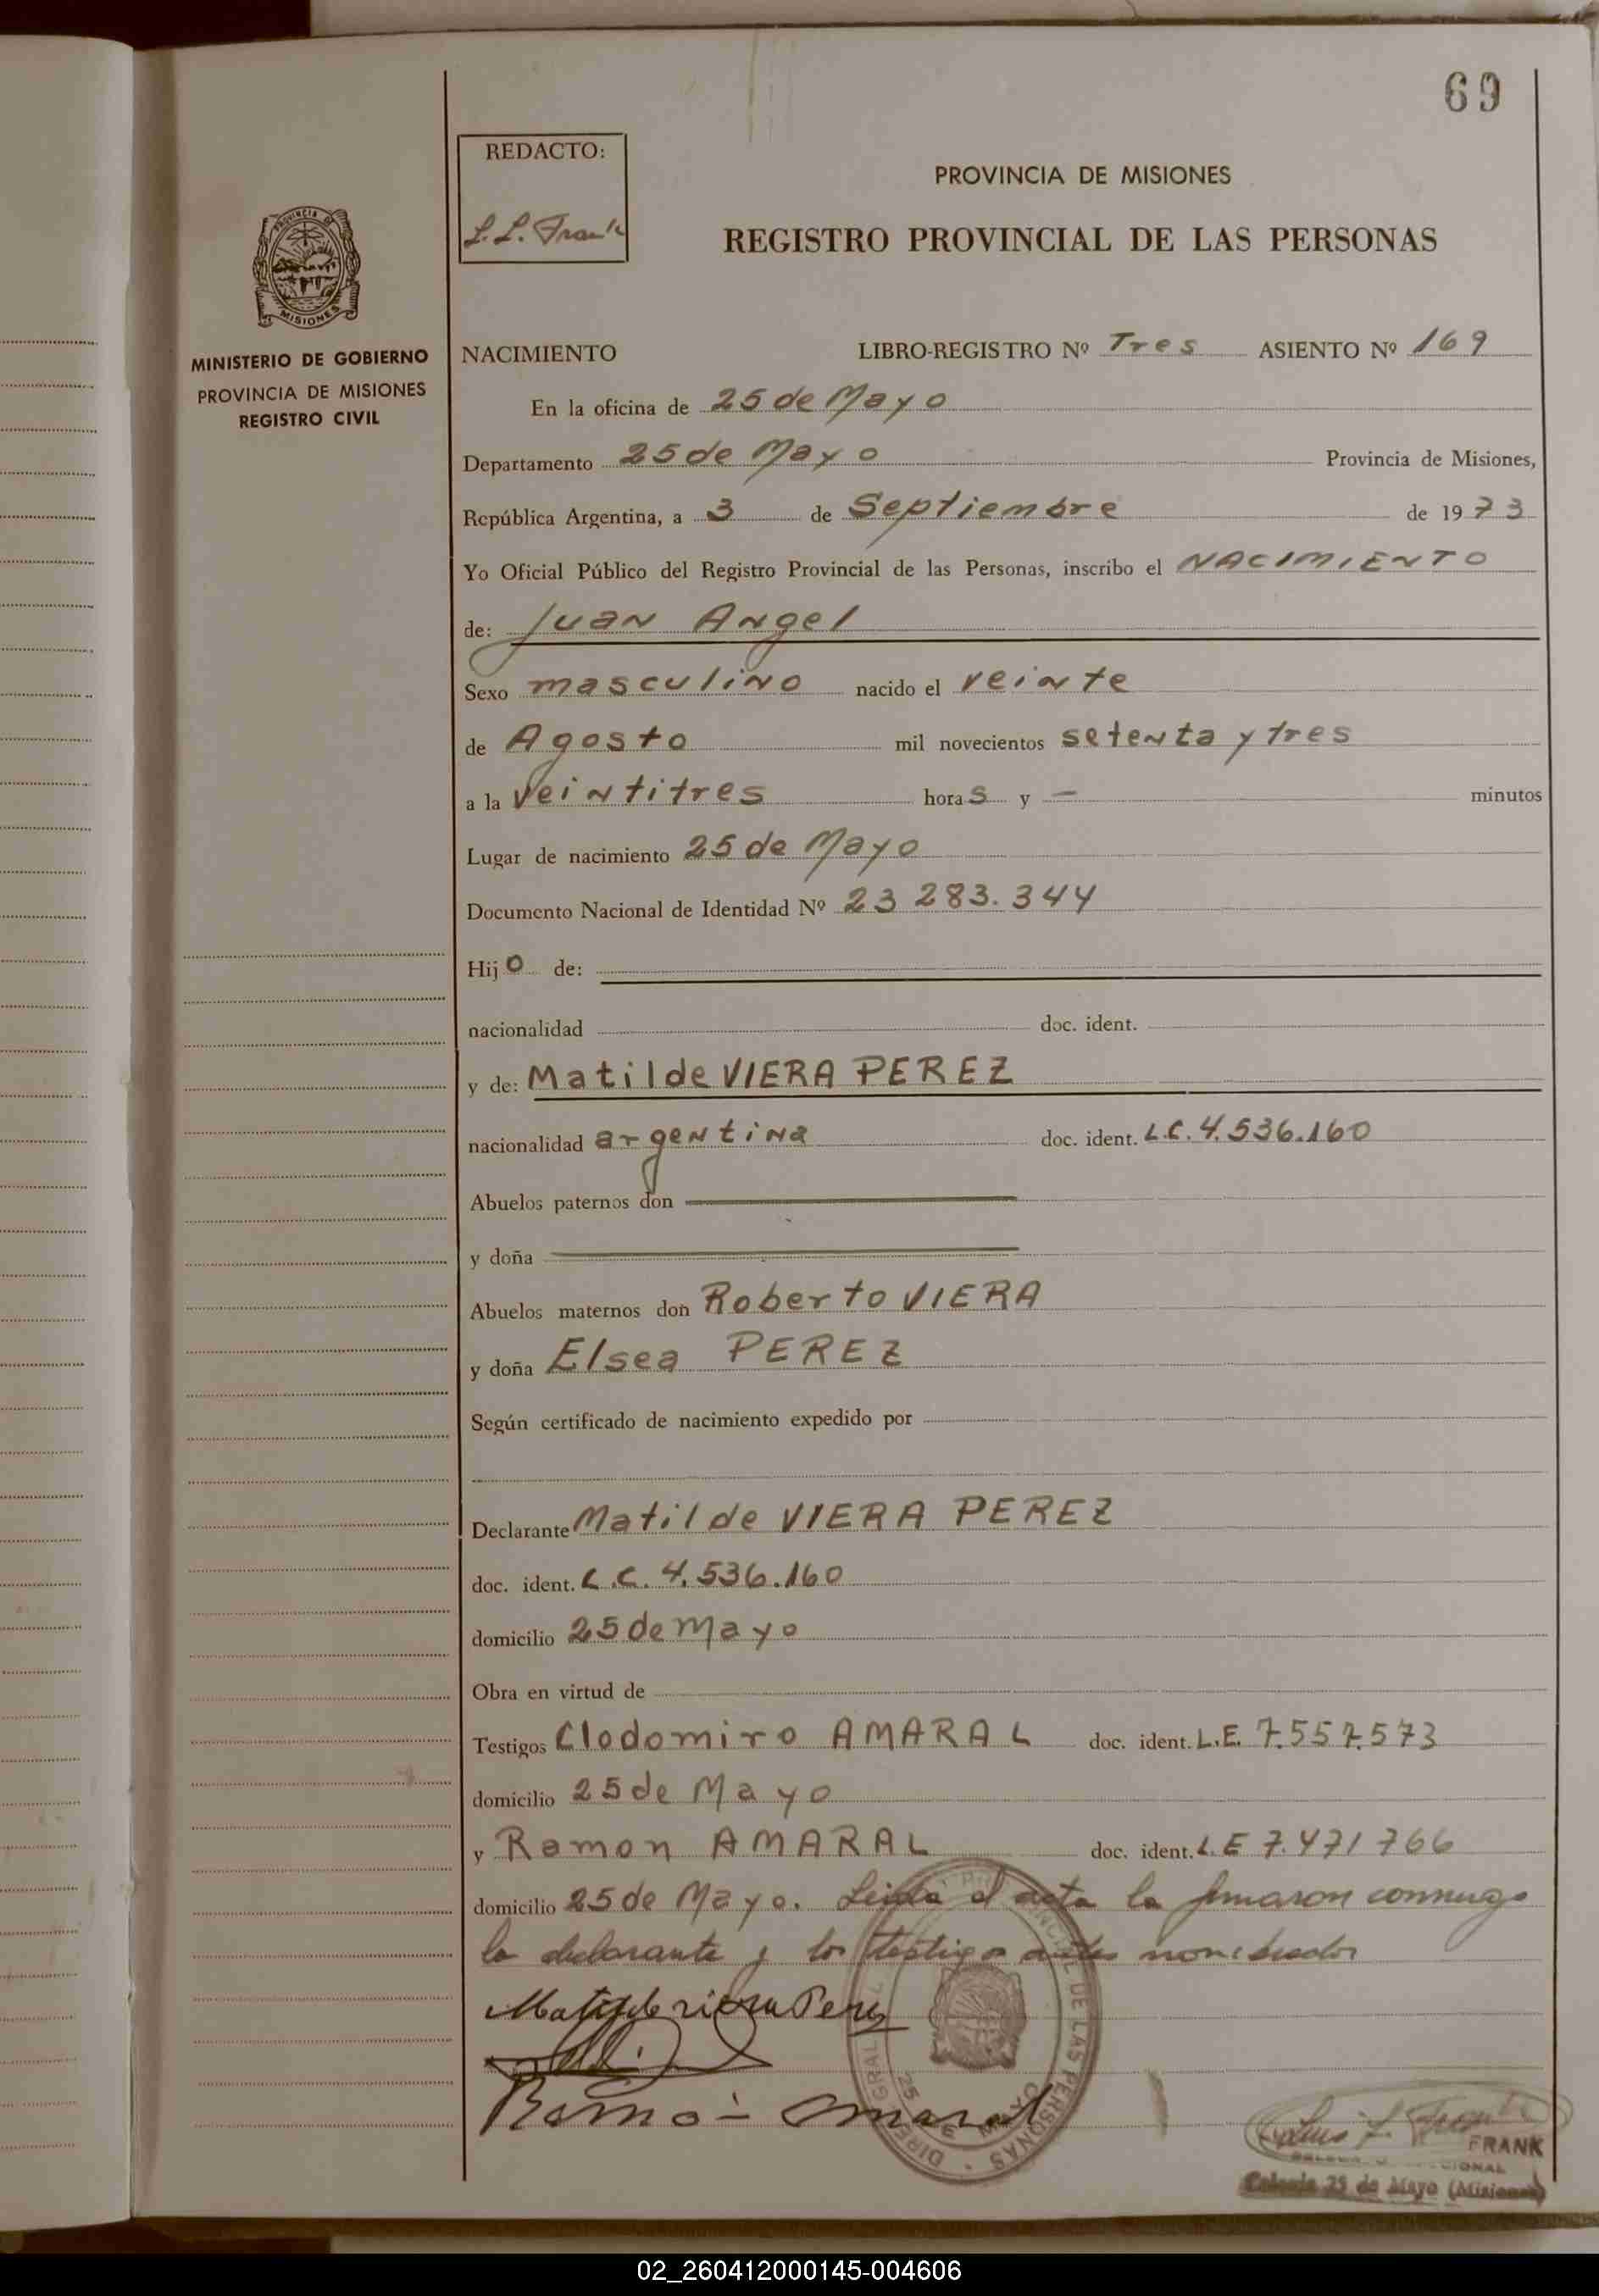 69
REDACTO:
L. L. Frank
PROVINCIA DE MISIONES
REGISTRO PROVINCIAL DE LAS PERSONAS
PROVINCIA DE
MISIONES
MINISTERIO DE GOBIERNO
PROVINCIA DE MISIONES
REGISTRO CIVIL
NACIMIENTO LIBRO-REGISTRO Nº Tres ASIENTO Nº 169
En la oficina de 25 de Mayo
Departamento 25 de Mayo Provincia de Misiones,
República Argentina, a 3 de Septiembre de 1973
Yo Oficial Público del Registro Provincial de las Personas, inscribo el NACIMIENTO
de: Juan Angel
Sexo masculino nacido el veinte
de Agosto mil novecientos setenta y tres
a la veintitres horas y — minutos
Lugar de nacimiento 25 de Mayo
Documento Nacional de Identidad Nº 23 283.344
Hijo de:
nacionalidad doc. ident.
y de: Matilde VIERA PEREZ
nacionalidad argentina doc. ident. L.C. 4.536.160
Abuelos paternos don
y doña
Abuelos maternos don Roberto VIERA
y doña Elsea PEREZ
Según certificado de nacimiento expedido por
Declarante Matilde VIERA PEREZ
doc. ident. L.C. 4.536.160
domicilio 25 de Mayo
Obra en virtud de
Testigos Clodomiro AMARAL doc. ident. L.E. 7.557.573
domicilio 25 de Mayo
y Ramon AMARAL doc. ident. L.E 7.471 766
domicilio 25 de Mayo. Leida el acta la firmaron conmigo
la declarante y los testigos antes nombrados
Matilde viera Perez
Ramon Amaral
DE LAS PERSONAS
25 DE MAYO
Luis L. Frank
FRANK
Colonia 25 de Mayo (Misiones)
02_260412000145-004606